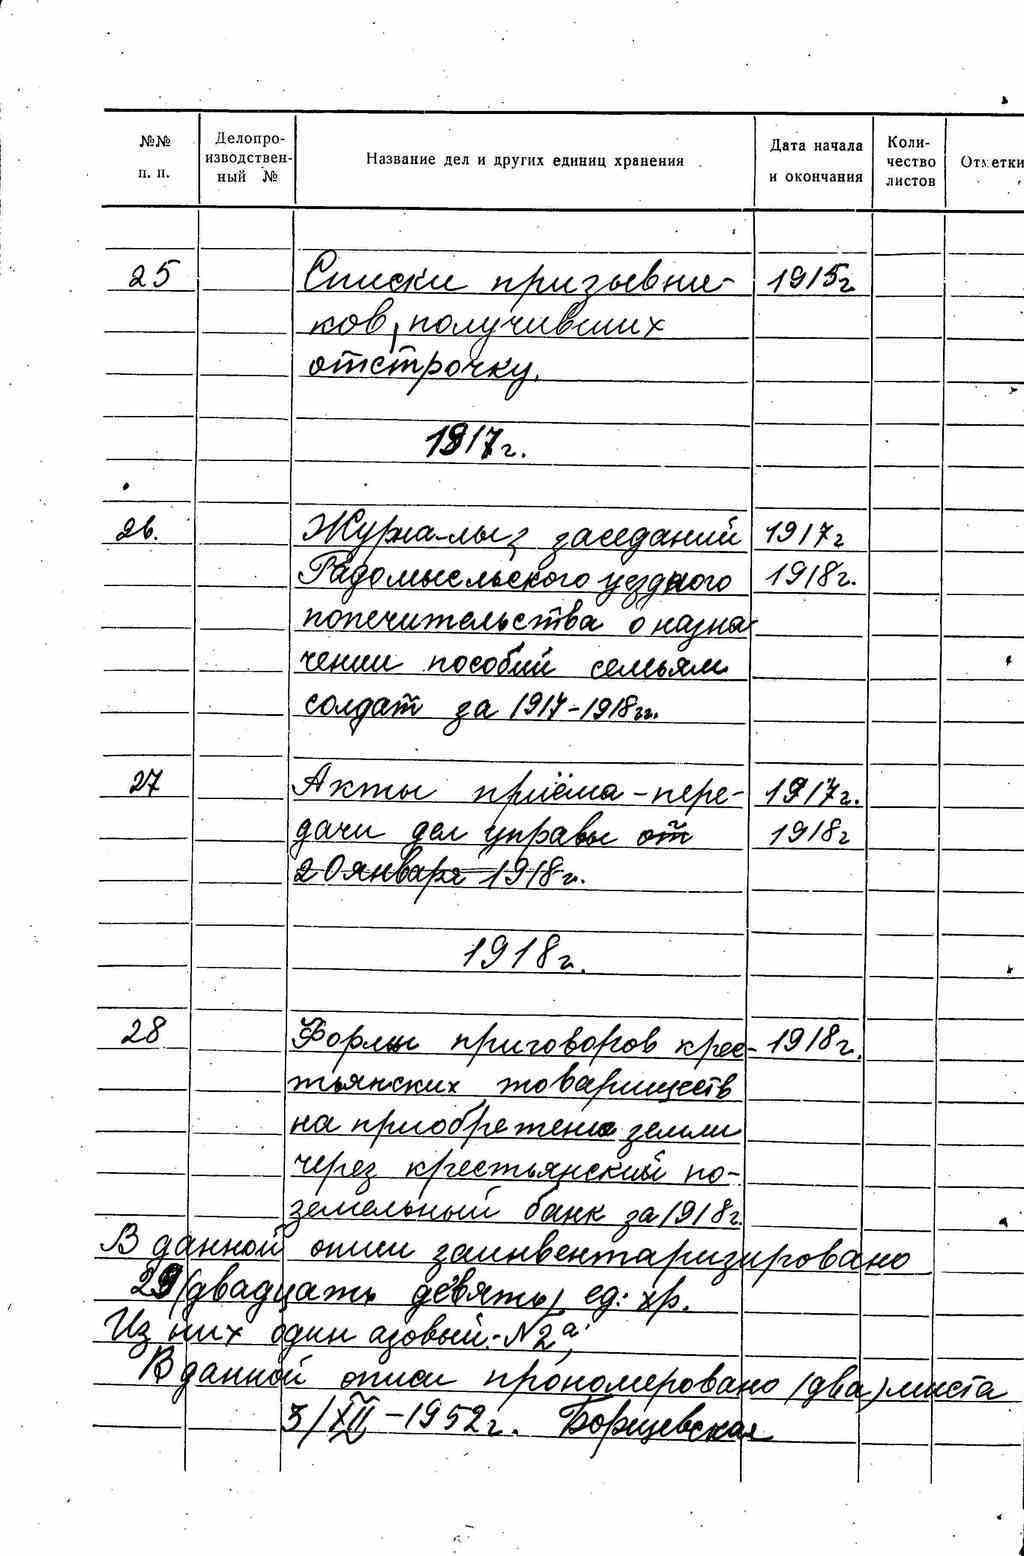 №№ п. п. Делопро-изводствен-ный № Название дел и других единиц хранения Дата начала и окончания Коли-чество листов Отметки
25 Списки призывни- 1915г
ков, получивших
отстрочку.
1917г.
26. Журналы заседаний 1917г
Радомысльского уездного 1918г.
попечительства о назна
чении пособий семьям
солдат за 1917-1918гг.
27 Акты приёма-пере- 1917г.
дачи дел управы от 1918г
20 января 1918г.
1918г.
28 Формы приговоров крес- 1918г.
тьянских товариществ
на приобретение земли
через крестьянский по-
земельный банк за 1918г.
В данной описи заинвентаризировано
29 (двадцать девять) ед. хр.
Из них один азовый: №2а,
В данной описи прономеровано (два) листа
3/XII-1952г. Борщевская